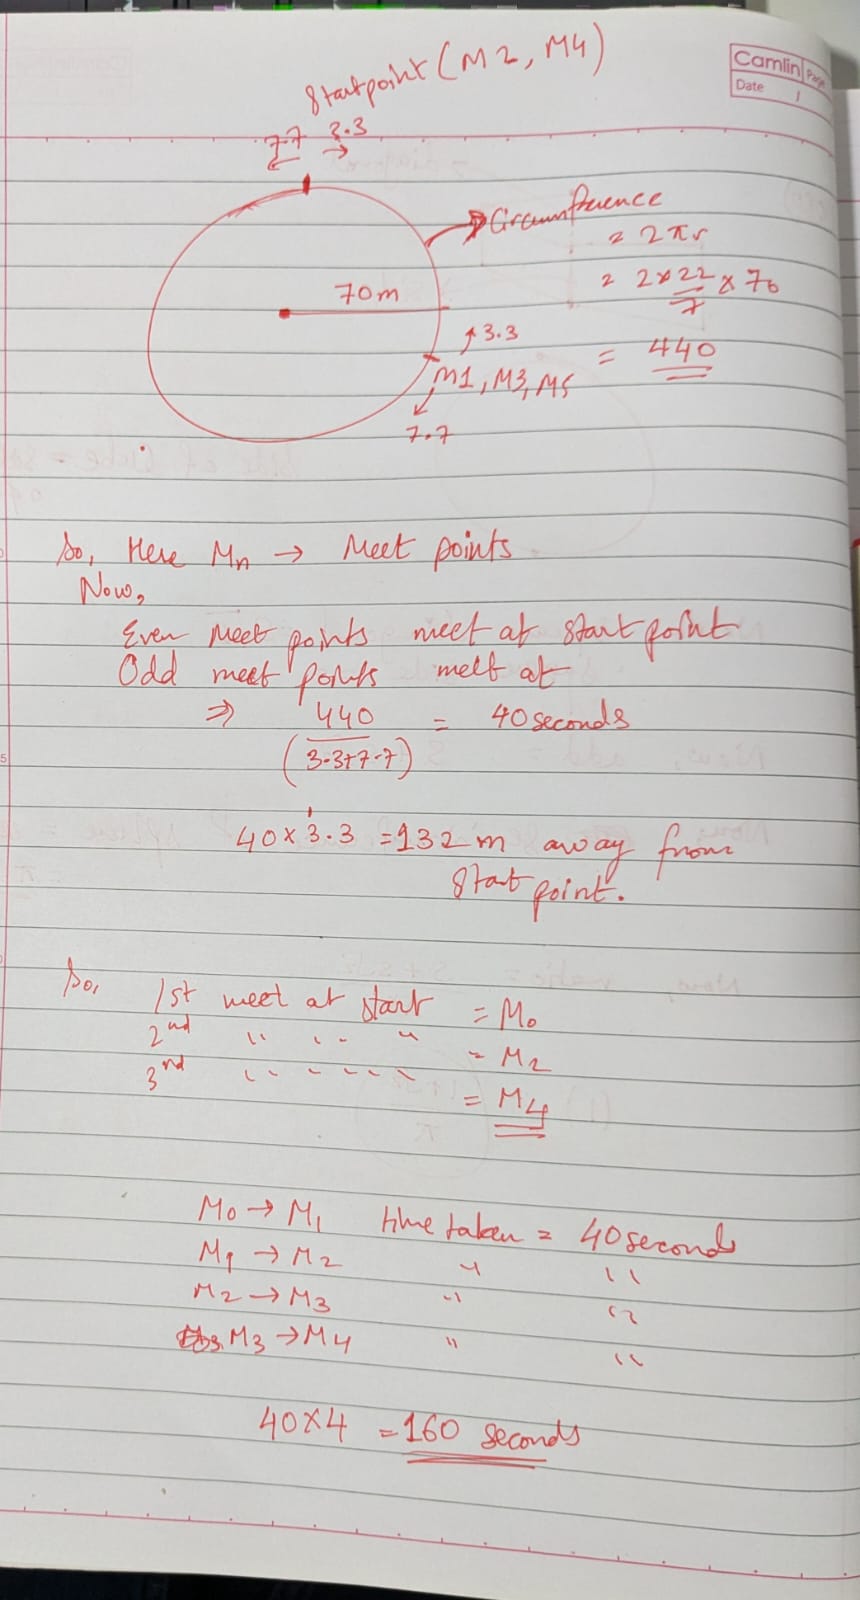 Camlin Page
Date /
Startpoint (M2, M4)
7.7 3.3
Circumference
= 2πr
= 2×22/7 × 70
= 440
70m
3.3
M1, M3, M5
7.7
So, Here Mn → Meet points
Now,
Even Meet points meet at start point
Odd meet points meet at
⇒ 440/(3.3+7.7) = 40 seconds
40×3.3 = 132 m away from
start point.
So, 1st meet at start = M0
2nd " " " = M2
3rd " " " " " = M4
M0 → M1 time taken = 40 seconds
M1 → M2 " "
M2 → M3 " "
M3 → M4 " "
40×4 = 160 seconds